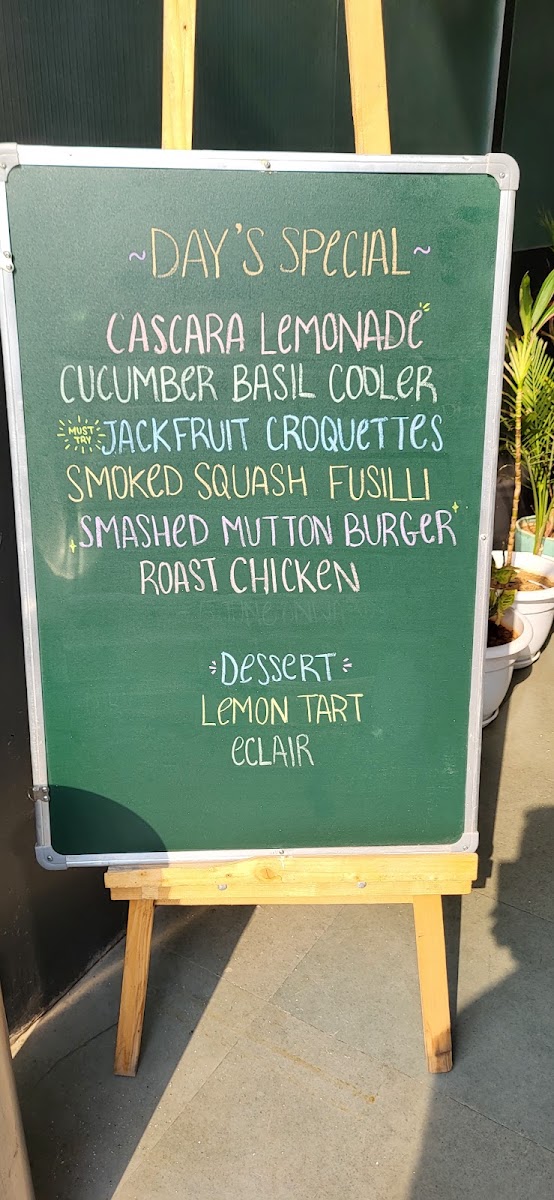 ~DAY'S SPECIAL~
CASCARA LEMONADE
CUCUMBER BASIL COOLER
MUST TRY JACKFRUIT CROQUETTES
SMOKED SQUASH FUSILLI
SMASHED MUTTON BURGER
ROAST CHICKEN
DESSERT
LEMON TART
ECLAIR